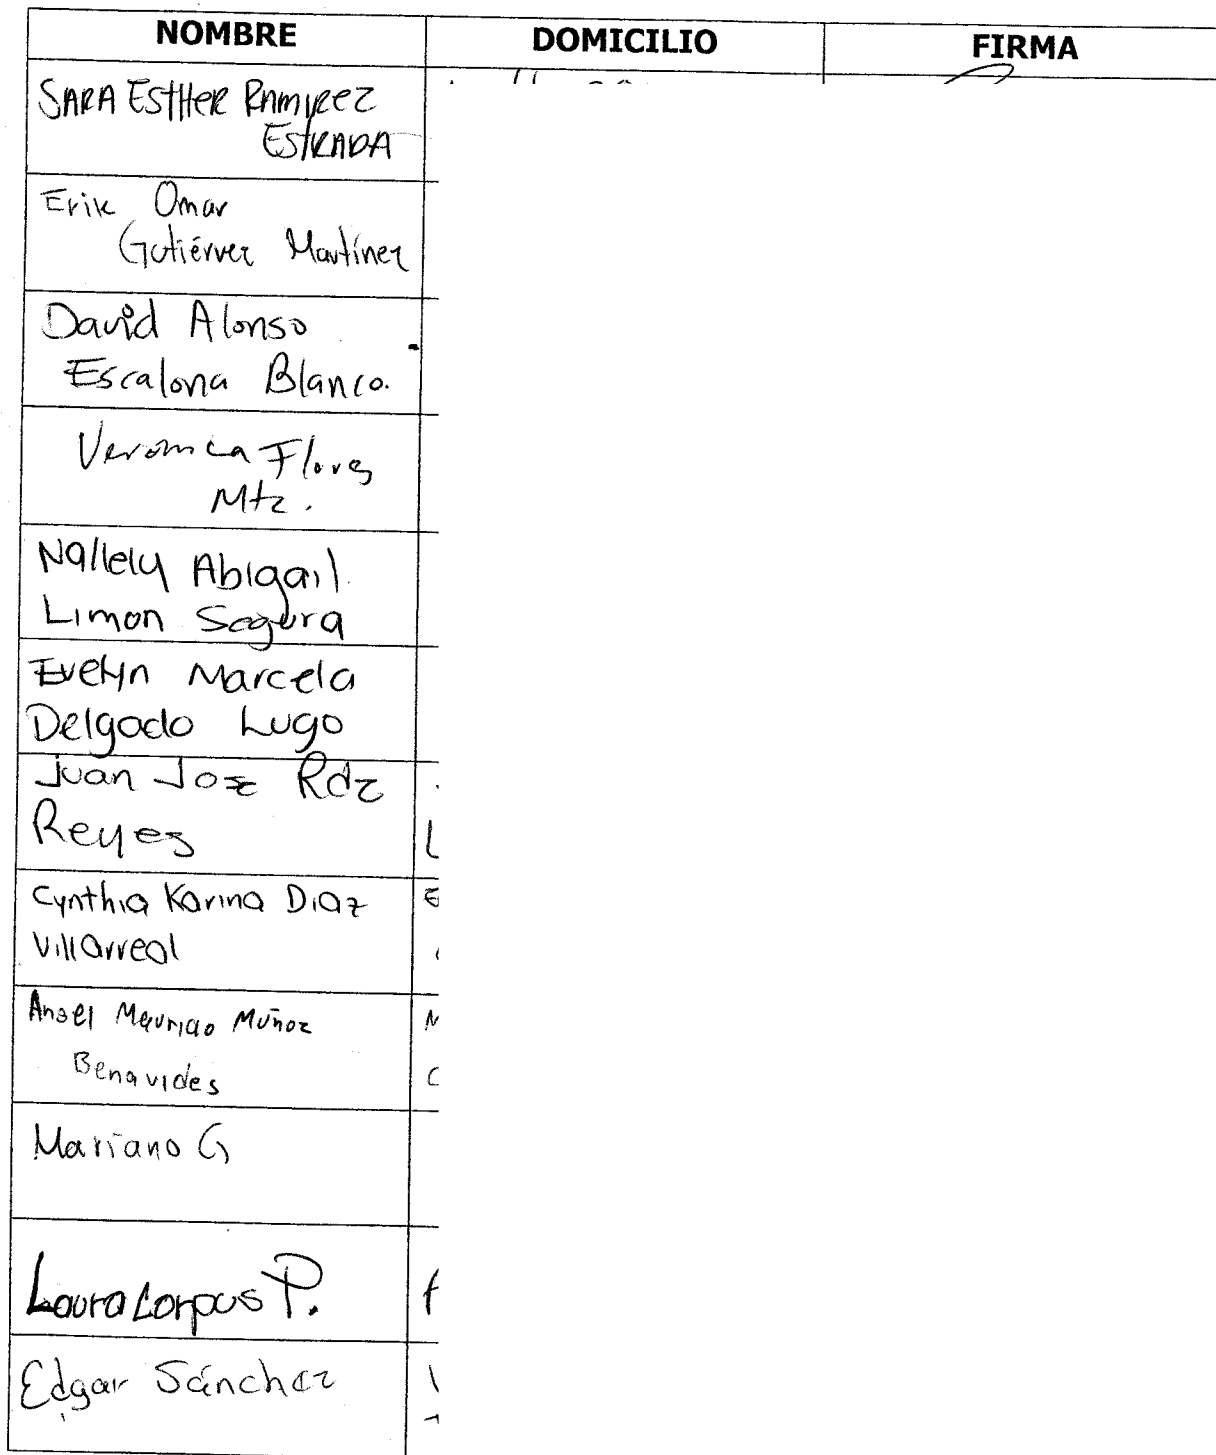 NOMBRE DOMICILIO FIRMA
SARA ESTHER RAMIREZ
ESTRADA
Erik Omar
Gutiérrez Martínez
David Alonso
Escalona Blanco.
Veronica Flores
Mtz.
Nallely Abigail
Limon Segura
Evelyn Marcela
Delgado Lugo
Juan Jose Rdz
Reyes
Cynthia Karina Diaz
Villarreal
Angel Mauricio Muñoz
Benavides
Mariano G
Laura Corpus P.
Edgar Sánchez